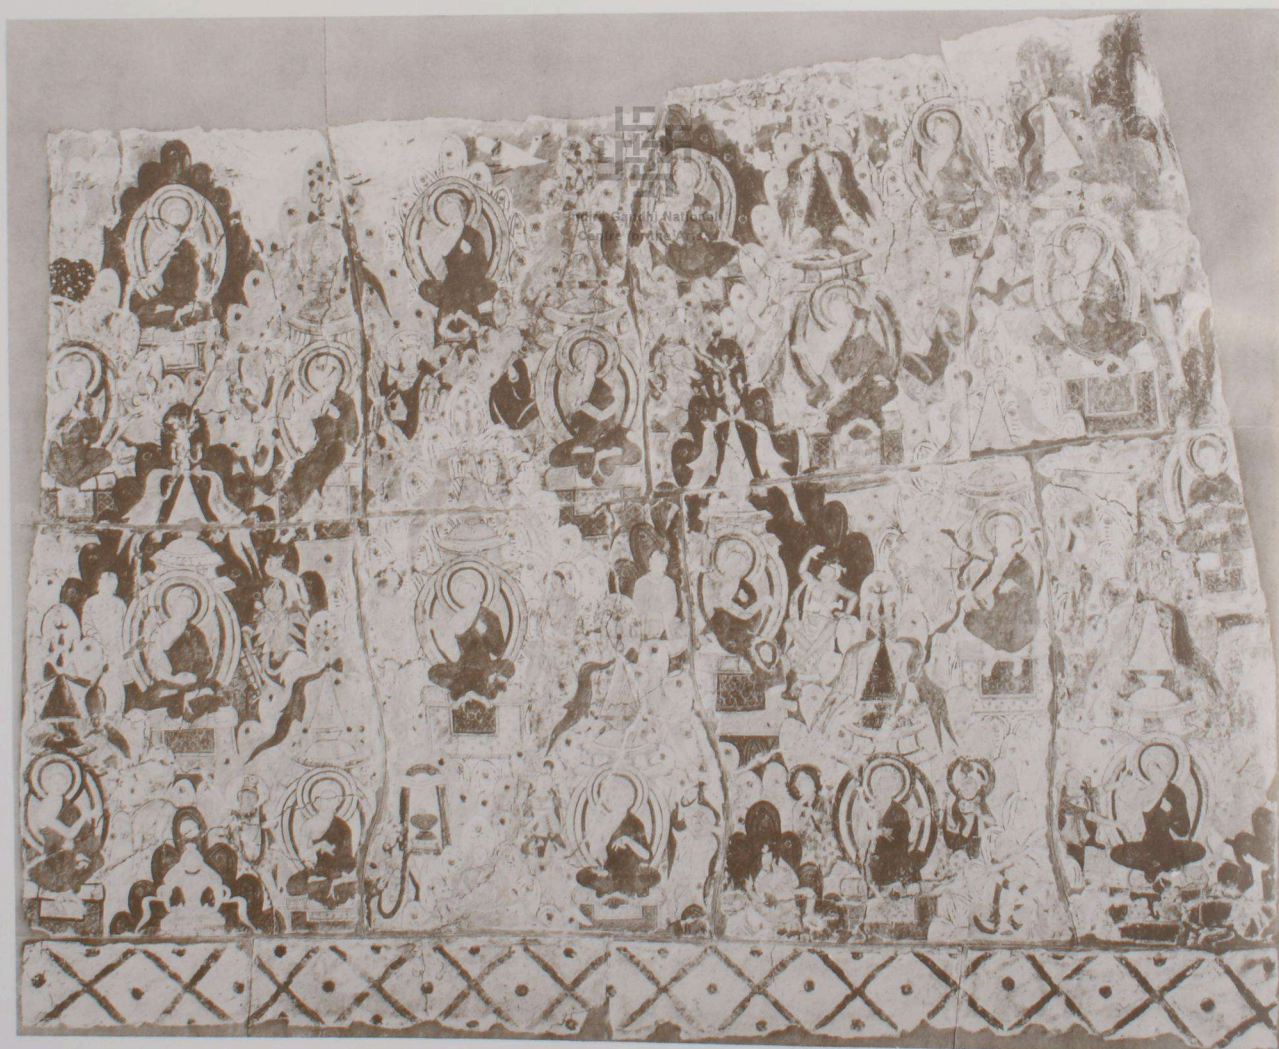 Indira Gandhi National
Centre for the Arts